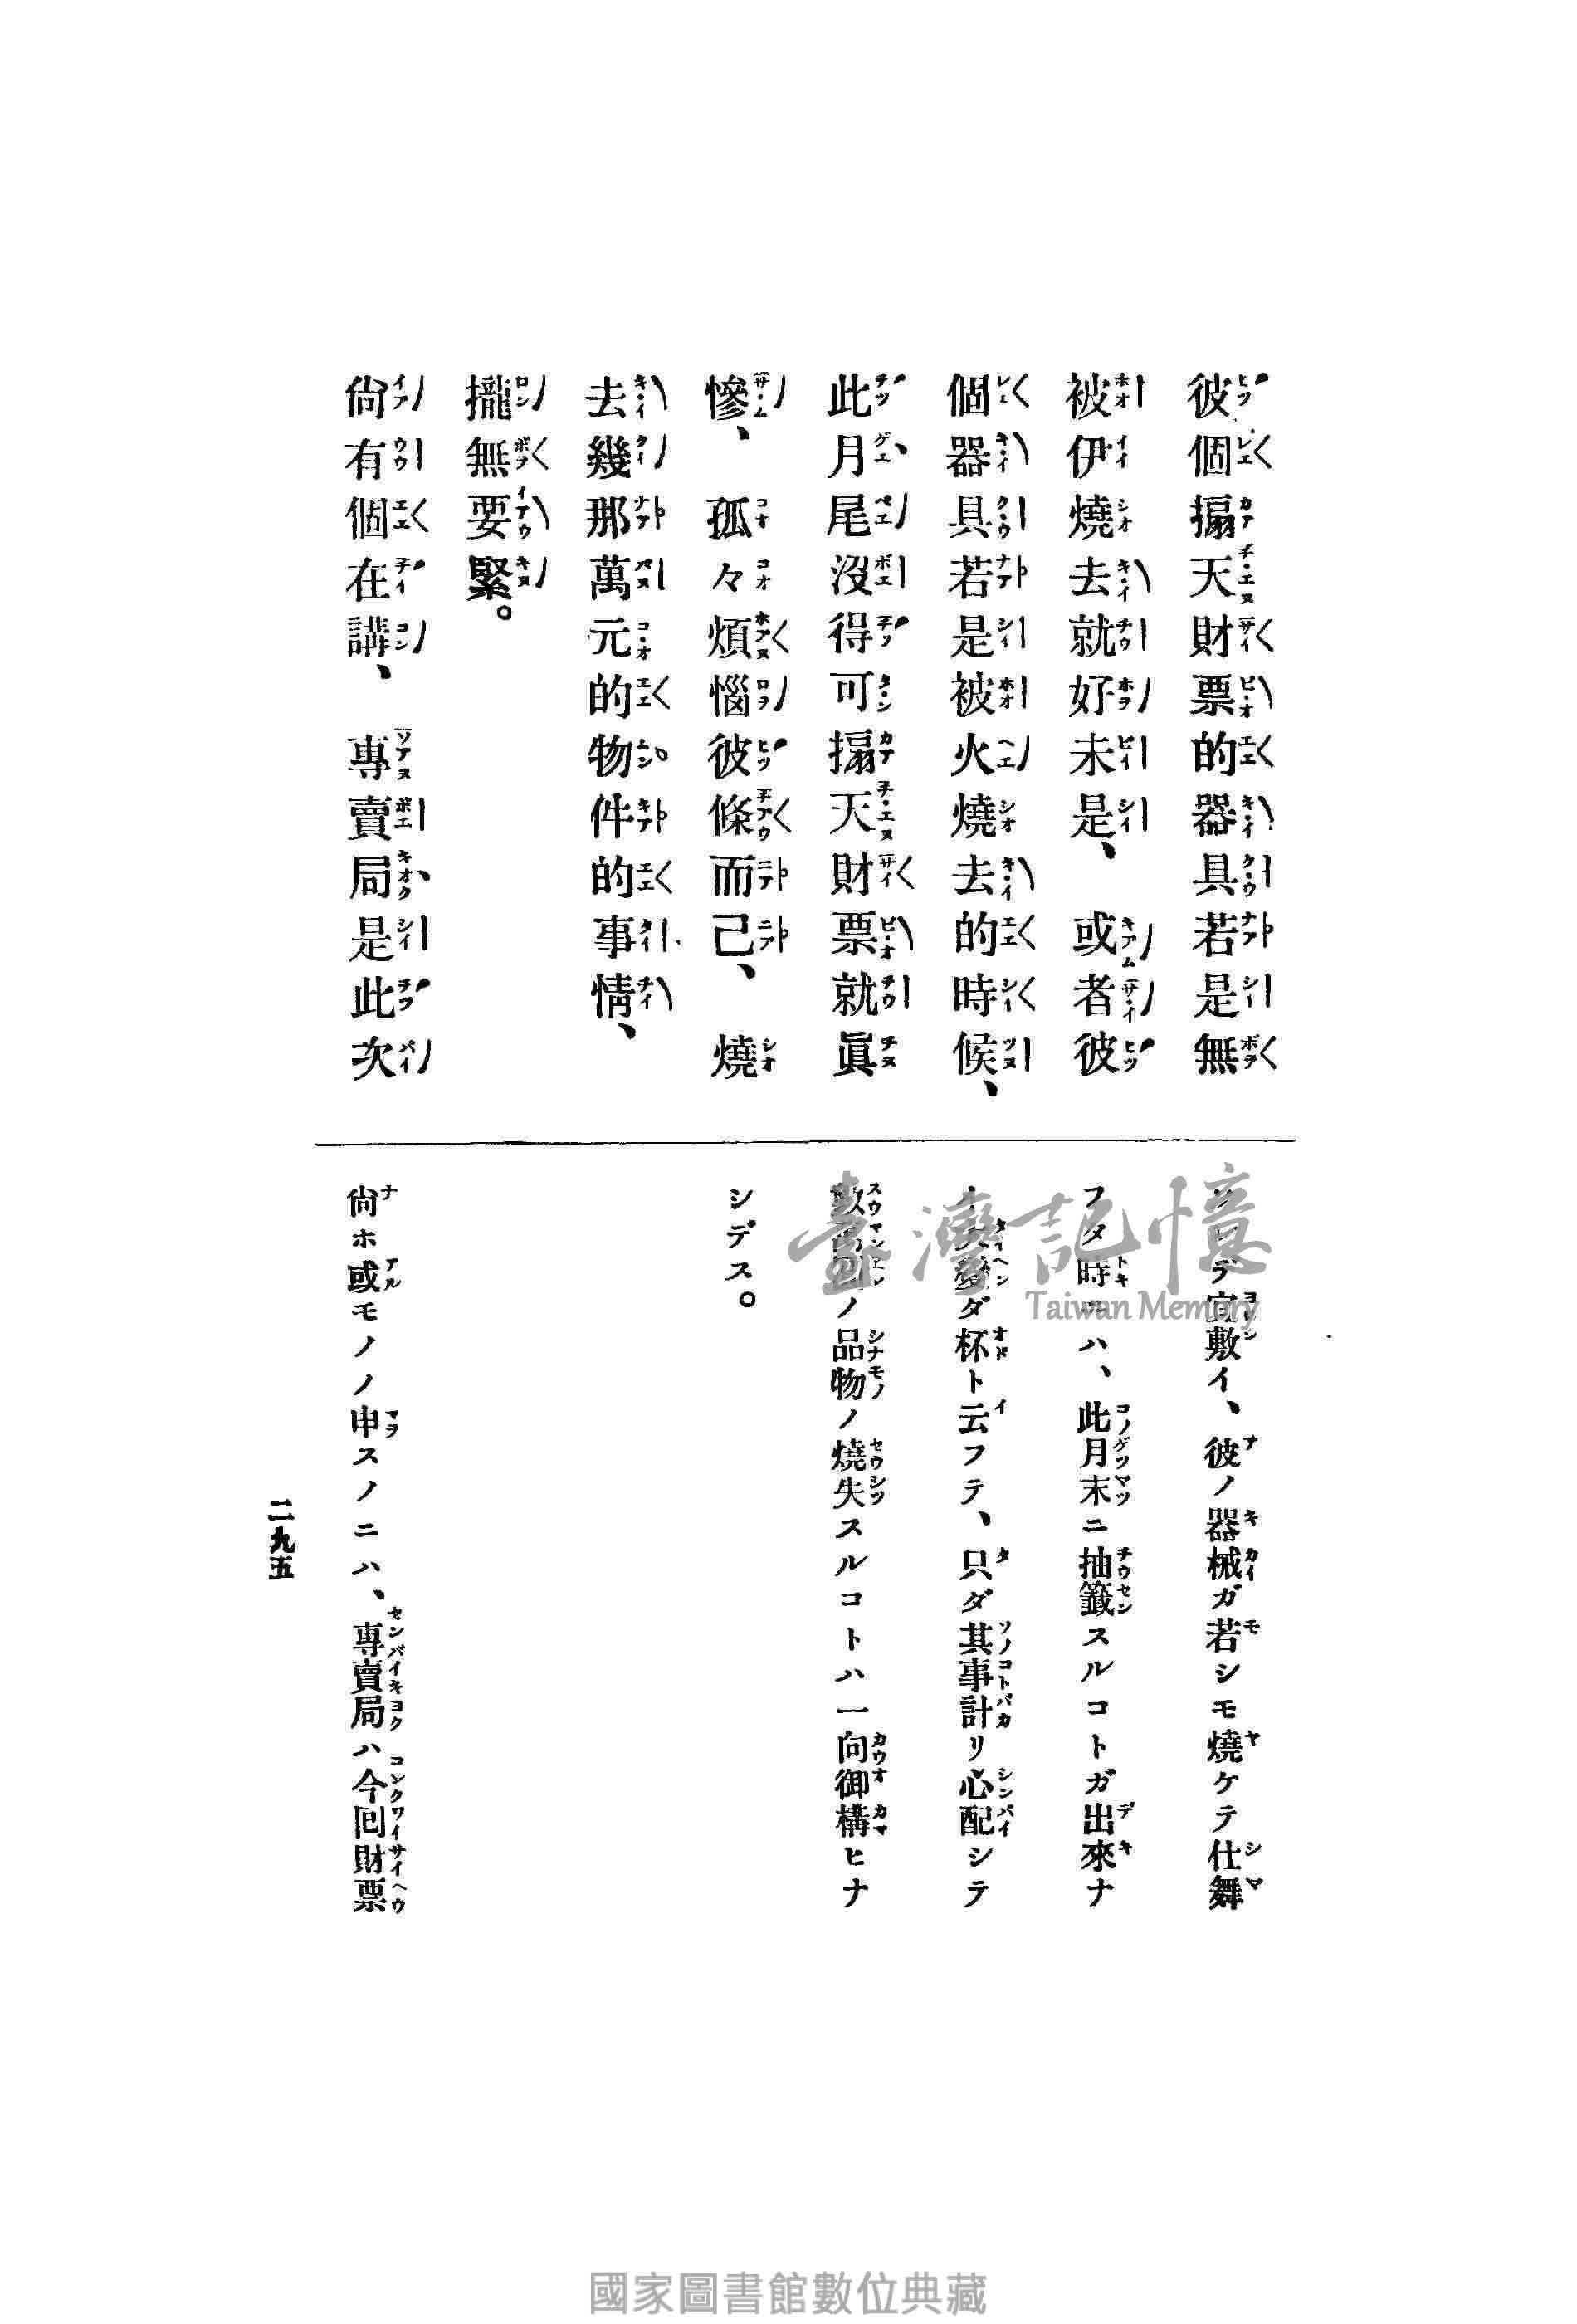 彼個搧天財票的器具若是無
被伊燒去就好未是、或者彼
個器具若是被火燒去的時候、
此月尾沒得可搧天財票就眞
慘、孤々煩惱彼條而已、燒
去幾那萬元的物件的事情、
攏無要緊。
尙有個在講、專賣局是此次
デ宜敷イ、彼ノ器械ガ若シモ燒ケテ仕舞
フタ時ニハ、此月末ニ抽籤スルコトガ出來ナ
イ大變ダ杯ト云フテ、只ダ其事計リ心配シテ
數萬圓ノ品物ノ燒失スルコトハ一向御構ヒナ
シデス。
尙ホ或モノノ申スノニハ、專賣局ハ今囘財票
二九五
臺灣記憶
Taiwan Memory
國家圖書館數位典藏